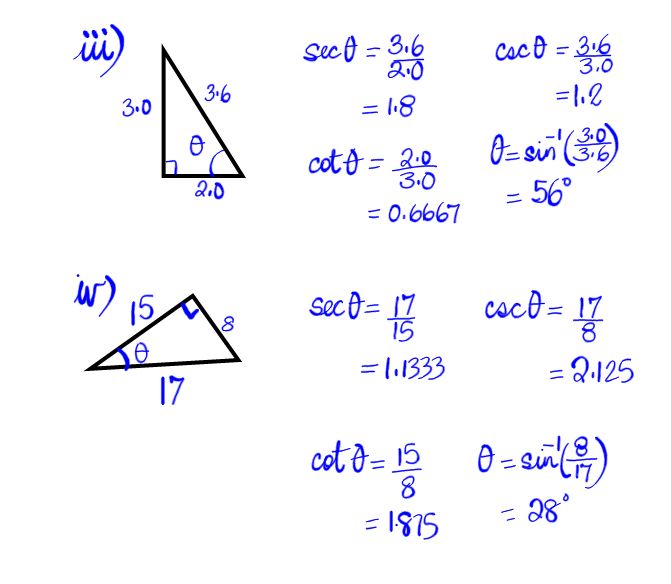 iii)
3.0
3.6
θ
2.0
secθ = 3.6/2.0
= 1.8
cscθ = 3.6/3.0
= 1.2
cotθ = 2.0/3.0
= 0.6667
θ = sin⁻¹(3.0/3.6)
= 56°
iv)
15
8
θ
17
secθ = 17/15
= 1.1333
cscθ = 17/8
= 2.125
cotθ = 15/8
= 1.875
θ = sin⁻¹(8/17)
= 28°